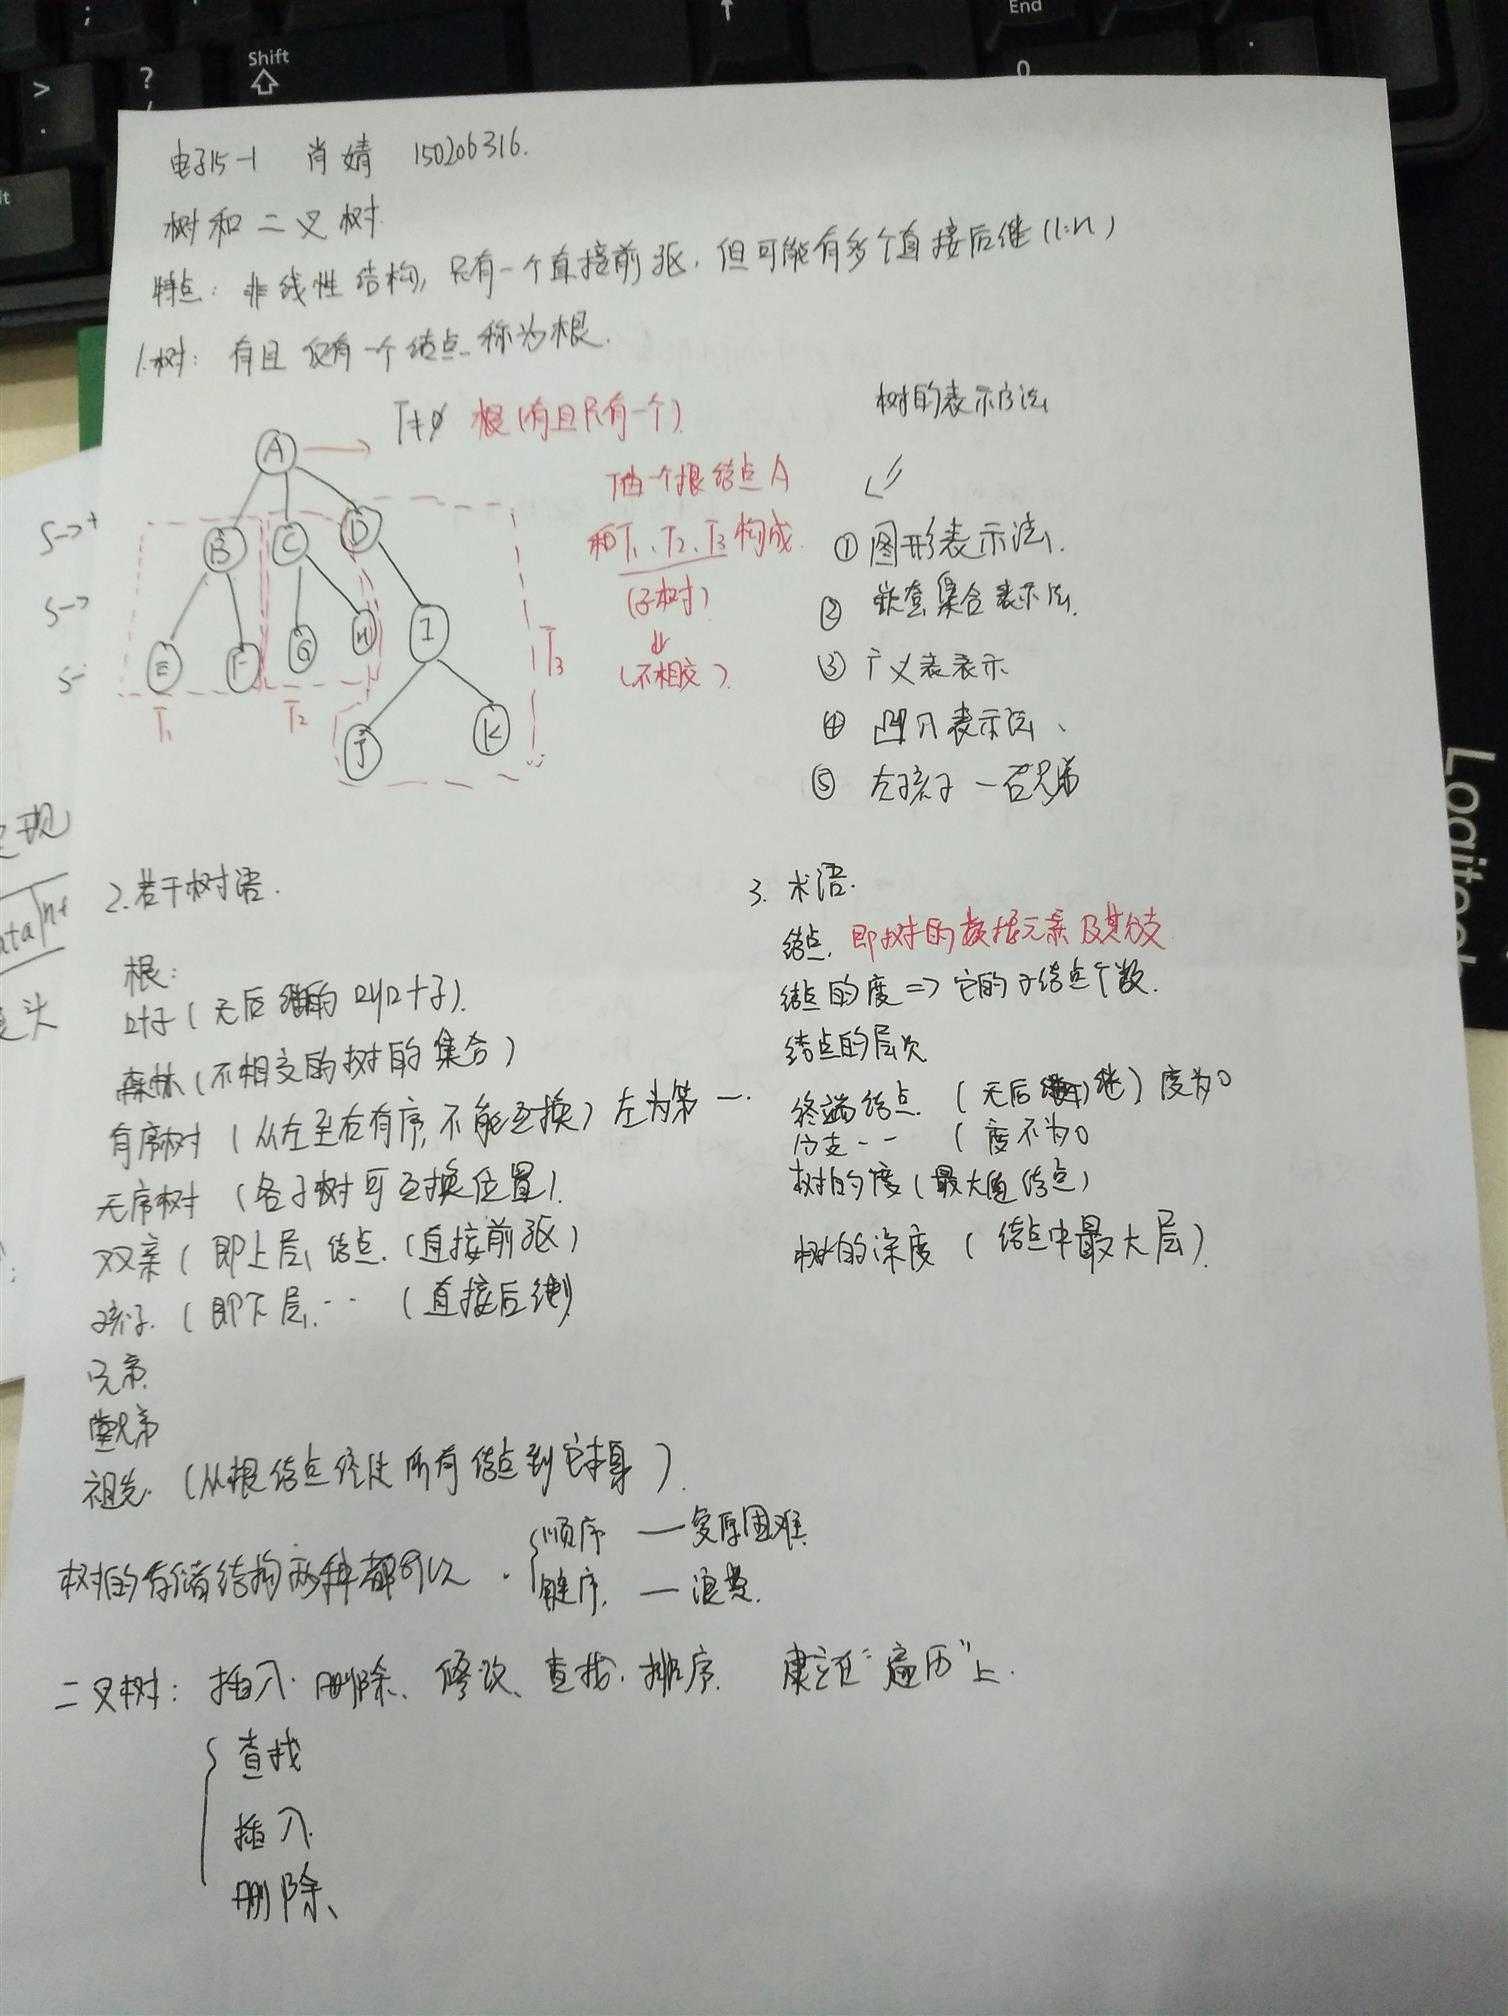 Shift
End
0
?
>
电子15-1 肖婧 150206316.
树和二叉树
特点: 非线性结构, 只有一个直接前驱, 但可能有多个直接后继 (1:n)
1.树: 有且仅有一个结点 称为根.
T≠∅ 根(有且只有一个)
树的表示方法
A
T由一个根结点A
和T1、T2、T3构成
(子树)
(不相交)
B C D
E F G H I
J K
T1 T2 T3
① 图形表示法.
② 嵌套集合表示法.
③ 广义表表示
④ 凹入表示法、
⑤ 左孩子-右兄弟
2.若干术语.
根:
叶子(无后继的叫叶子).
森林(不相交的树的集合)
有序树 (从左至右有序,不能互换) 左为第一.
无序树 (各子树可互换位置).
双亲 (即上层结点. (直接前驱)
孩子. (即下层.·· (直接后继)
兄弟.
堂兄弟
祖先. (从根结点经过所有结点到它本身)
3. 术语.
结点. 即树的数据元素及其分支
结点的度=>它的子结点个数.
结点的层次
终端结点. (无后继) 度为0
分支-- (度不为0
树的度(最大值结点)
树的深度 (结点中最大层).
树的存储结构两种都可以.
顺序 — 复原困难
链序. — 浪费.
二叉树: 插入.删除、修改、查找.排序. 建立在"遍历"上.
查找
插入.
删除、
S->
S->
S-
实现
ata
头
Logitech